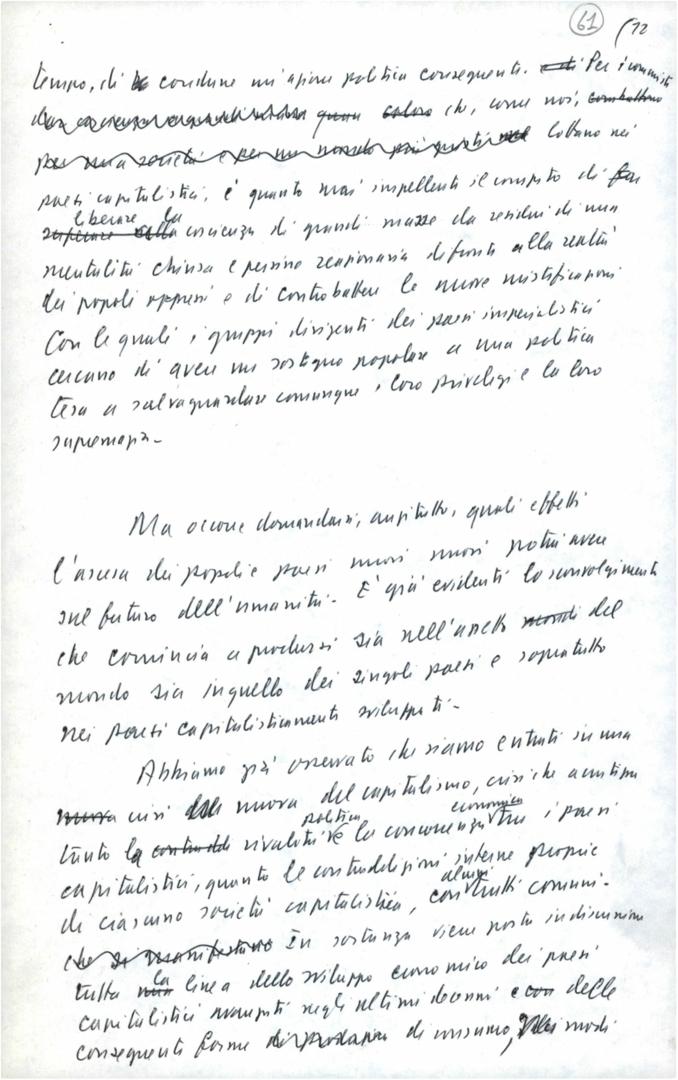 61
12
tempo, di condurre un'azione politica conseguente. Per i comunisti
che, come noi, combattono
per una società e per un mondo più giusti lottano nei
paesi capitalistici, è quanto mai impellente il compito di far
liberare la
superare coscienza di grandi masse da residui di una
mentalità chiusa e persino reazionaria di fronte alla realtà
dei popoli oppressi e di controbattere le nuove mistificazioni
con le quali i gruppi dirigenti dei paesi imperialistici
cercano di avere un sostegno popolare a una politica
tesa a salvaguardare comunque i loro privilegi e la loro
supremazia.
Ma occorre domandarsi, anzitutto, quali effetti
l'ascesa dei popoli e paesi nuovi potrà avere
sul futuro dell'umanità. È già evidente lo sconvolgimento
che comincia a prodursi sia nell'assetto mondi del
mondo sia in quello dei singoli paesi e sopratutto
nei paesi capitalisticamente sviluppati.
Abbiamo già osservato che siamo entrati in una
nuova crisi nuova del capitalismo, crisi che acutizza
politica economica
tanto la rivalità e la concorrenza tra i paesi
capitalistici, quanto le contraddizioni interne proprie
alcuni
di ciascuna società capitalistica, con tratti comuni.
che si manifestano In sostanza viene posta in discussione
la
tutta linea dello sviluppo economico dei paesi
capitalistici avanzati negli ultimi decenni e con delle
conseguenti forme di produzione di consumo, modi